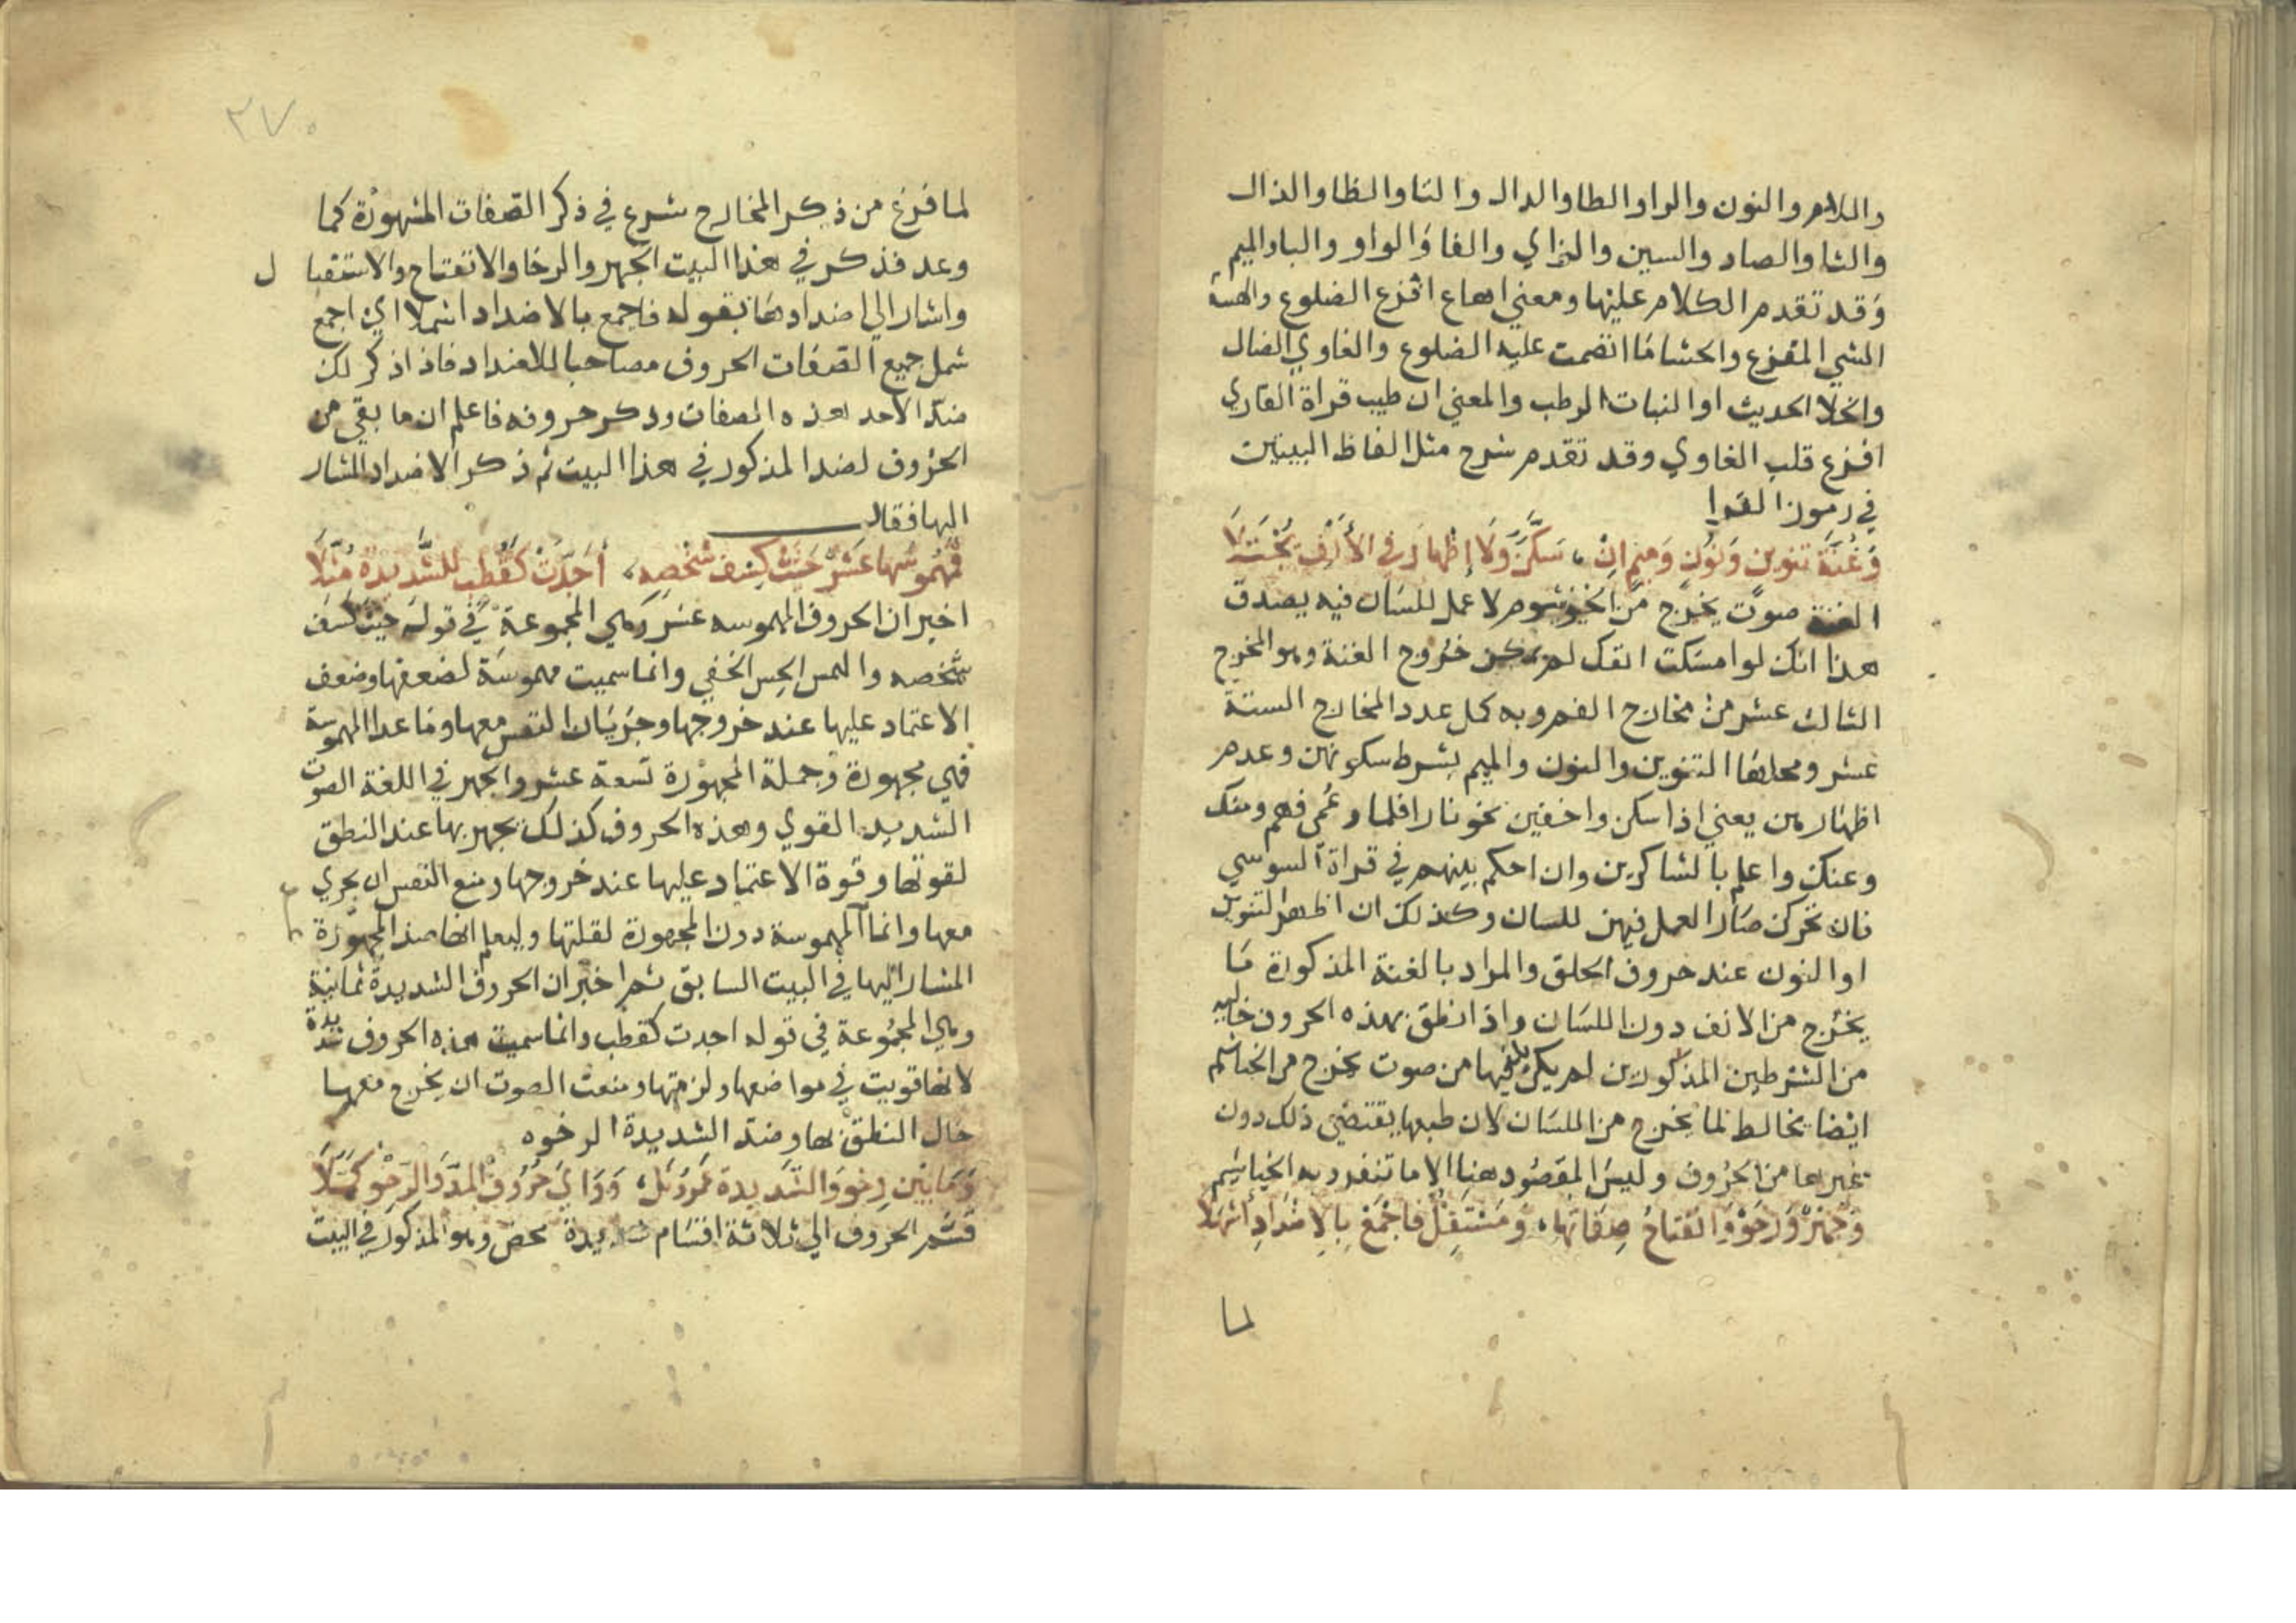 واللام والنون والرا والطا والدال والتا والظا والذال
والثا والصاد والسين والزاي والفا والواو والبا والميم
وقد تقدم الكلام عليها ومعني اهاع افزع الضلوع والهشة
الشي المفزع والحشا ما انضمت عليه الضلوع والغاوي الضال
والخلا الحديث او النبات الرطب والمعني ان طيب قراة القاري
افزع قلب الغاوي وقد تقدم شرح مثل الفاظ البيتين
في رموز القرا
وَغُنَّةُ تنوين وَنُونٍ وَمِيمٍ انْ سَكَنَّ وَلَا إِظْهَارَ في الأَنْفِ يُجْتَلَا
الغنة صوت يخرج من الخيشوم لا عمل للسان فيه يصدق
هذا انك لو امسكت انفك لم يمكن خروج الغنة وهو المخرج
الثالث عشر من مخارج الفم وبه كمل عدد المخارج الستة
عشر ومحلها التنوين والنون والميم بشرط سكونهن وعدم
اظهارهن يعني اذا سكن واخفين نحو نارا فلما وعمي فهم ومنك
وعنك واعلم بالشاكرين وان احكم بينهم في قراة السوسي
فان تحركن صار العمل فيهن للسان وكذلك ان اظهر التنوين
او النون عند حروف الحلق والمراد بالغنة المذكورة ما
يخرج من الانف دون اللسان واذا نطق بهذه الحروف خاليه
من الشرطين المذكورين لم يكن بد فيها من صوت يخرج من الخياشم
ايضا يخالط لما يخرج من اللسان لان طبعها يقتضي ذلك دون
غيرها من الحروف وليس المقصود هنا الا ما تنفرد به الخياشم
وَجَهْرٌ وَرِخْوٌ وَانْفِتَاحُ صِفَاتُهَا وَمُسْتَفِلٌ فَاجْمَعْ بِالاضْدَادِ أشْمُلَا
لما
٢٧٠
لما فرغ من ذكر المخارج شرع في ذكر الصفات المشهورة كما
وعد فذكر في هذا البيت الجهر والرخا والانفتاح والاستفال
واشار الي اضدادها بقوله فاجمع بالاضداد اشملا اي اجمع
شمل جميع الصفات الحروف مصاحبا للاضداد فاذا ذكر لك
ضدا لاحد هذه الصفات وذكر حروفه فاعلم ان ما بقي من
الحروف لضد المذكور في هذا البيت ثم ذكر الاضداد المشار
اليها فقال
فَمَهْمُوسُهَا عَشْرٌ حَثَتْ كِسْفَ شَخْصِهِ أَجَدَّتْ كَقُطْبٍ للشَّدِيدَةِ مُثِّلَا
اخبر ان الحروف المهموسه عشر وهي المجموعة في قوله حثت كسف
شخصه والهمس الحس الخفي وانما سميت مهموسة لضعفها وضعف
الاعتماد عليها عند خروجها وجريان النفس معها وما عدا المهموسة
فهي مجهورة وجملة المجهورة تسعة عشر والجهر في اللغة الصوت
الشديد القوي وهذه الحروف كذلك يجهر بها عند النطق
لقوتها وقوة الاعتماد عليها عند خروجها ومنع النفس ان يجري
معها وانما المهموسة دون المجهورة لقلتها وليعلم انها ضد المجهورة
المشار اليها في البيت السابق ثم اخبر ان الحروف الشديدة ثمانية
وهي المجموعة في قوله اجدت كقطب وانما سميت هذه الحروف شديدة
لانها قويت في مواضعها ولزمتها ومنعت الصوت ان يخرج معها
حال النطق بها وضد الشديدة الرخوه
وَمَا بَيْنَ رِخْوٍ وَالشَّدِيدَةِ عَمْرُنَلْ وَوَايٌ حُرُوفُ المَدِّ وَالرِّخْوِ كَمَّلَا
قسم الحروف الي ثلاثة اقسام شديدة محض وهو المذكور في البيت